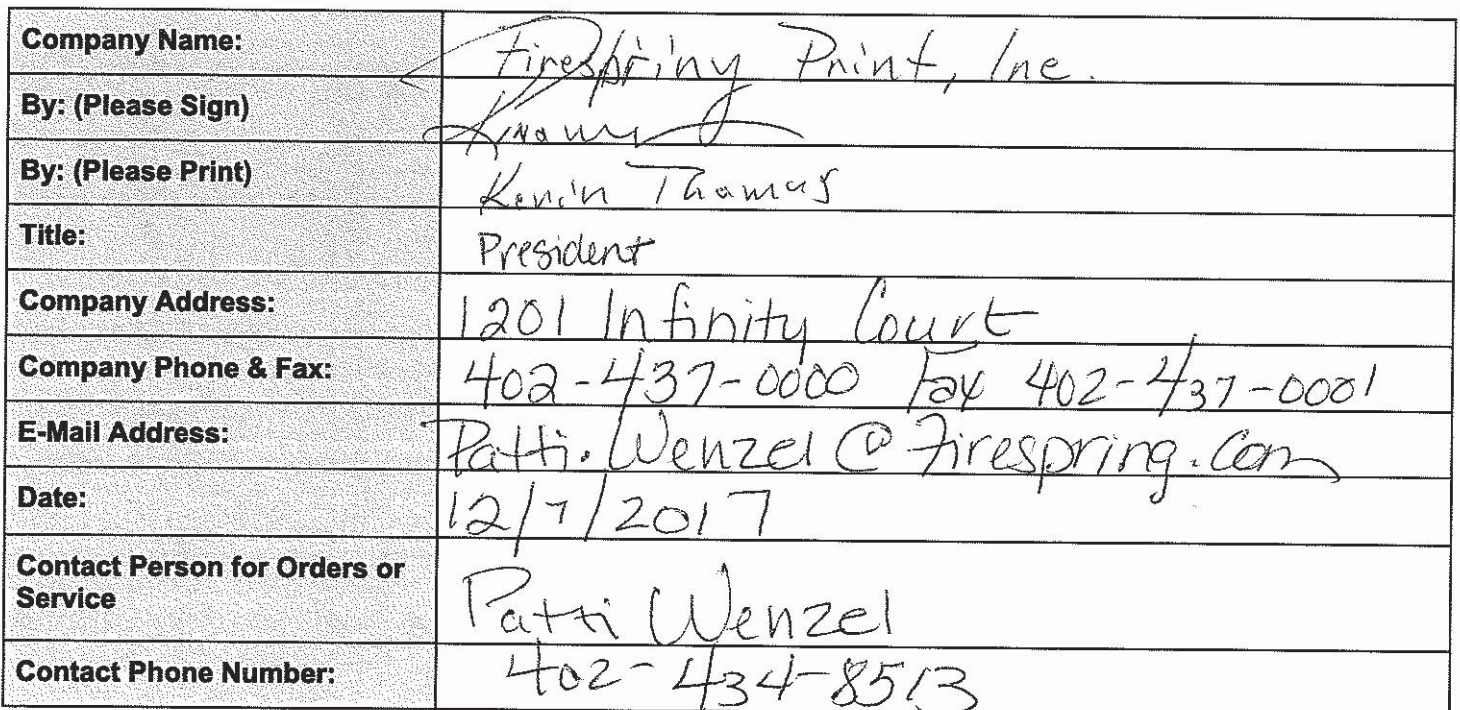 Company Name: Firespring Print, Inc.
By: (Please Sign)
By: (Please Print) Kevin Thomas
Title: President
Company Address: 1201 Infinity Court
Company Phone & Fax: 402-437-0000 Fax 402-437-0001
E-Mail Address: Patti.Wenzel@firespring.com
Date: 12/7/2017
Contact Person for Orders or
Service Patti Wenzel
Contact Phone Number: 402-434-8513